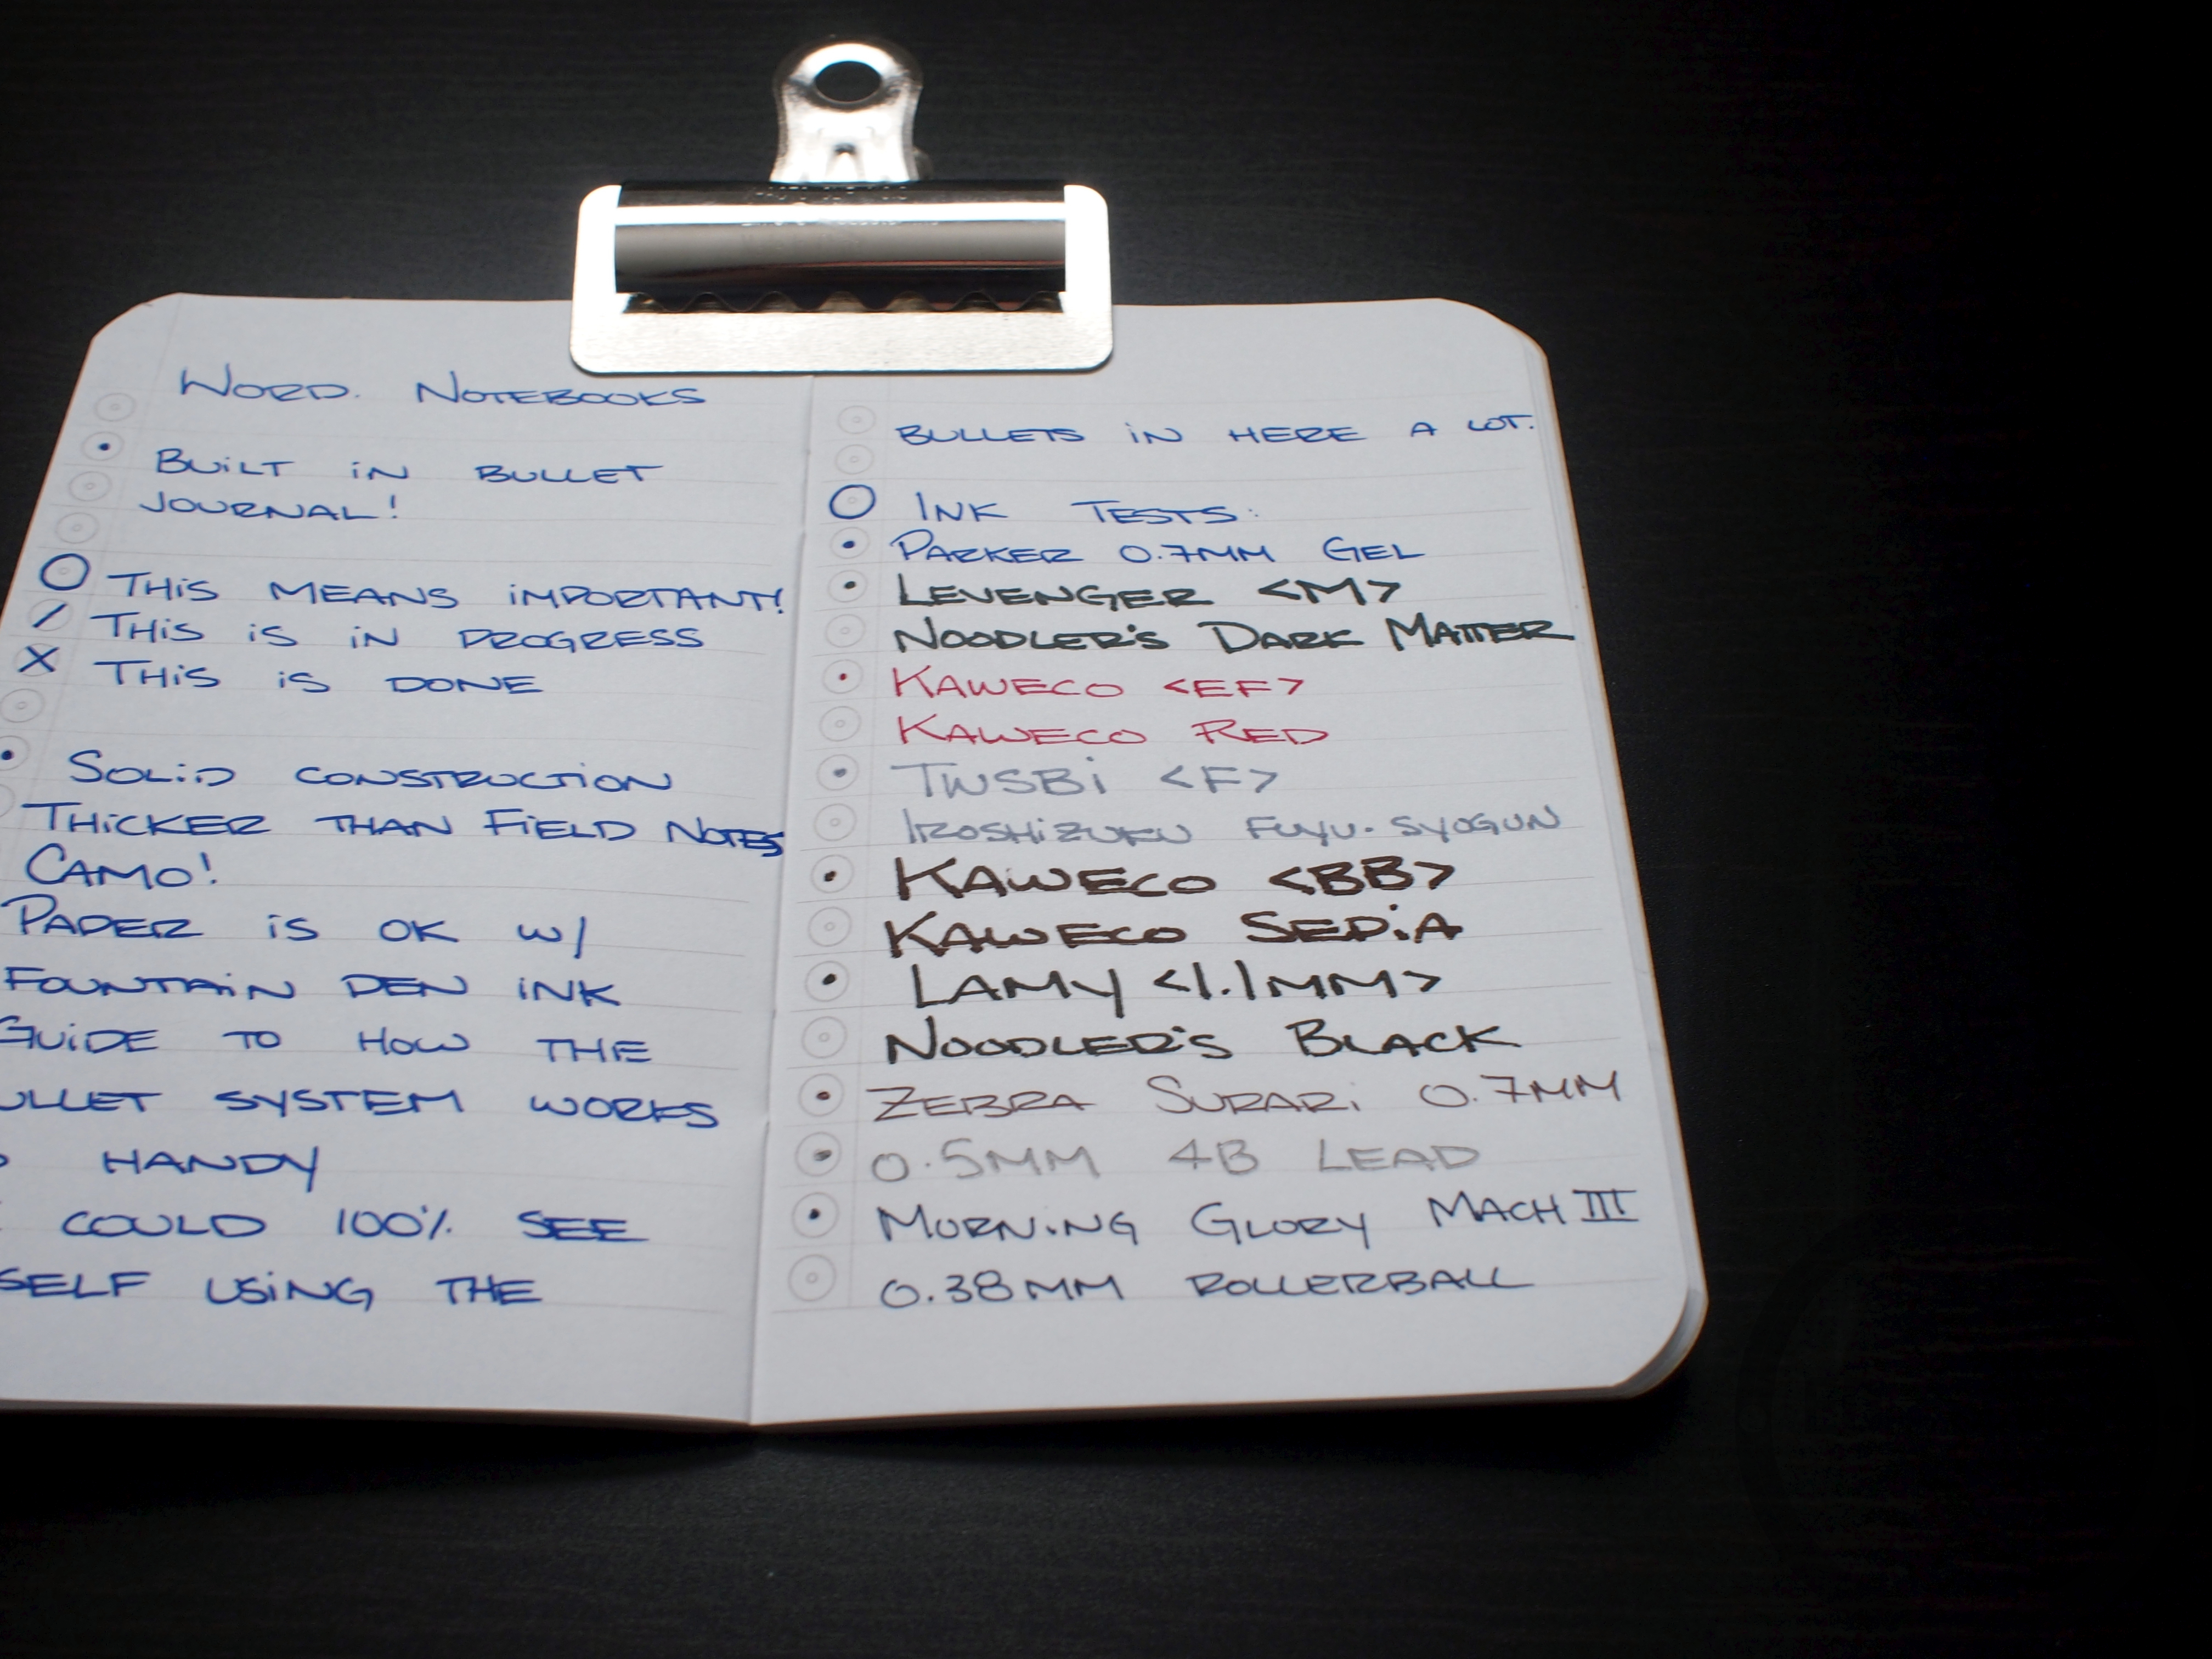 WORD. NOTEBOOKS
BUILT IN BULLET
JOURNAL!
THIS MEANS IMPORTANT!
THIS IS IN PROGRESS
X THIS IS DONE
SOLID CONSTRUCTION
THICKER THAN FIELD NOTES
CAMO!
PAPER IS OK W/
FOUNTAIN PEN INK
GUIDE TO HOW THE
ULLET SYSTEM WORKS
HANDY
COULD 100% SEE
SELF USING THE
BULLETS IN HERE A LOT.
INK TESTS:
PARKER 0.7MM GEL
LEVENGER <M>
NOODLER'S DARK MATTER
KAWECO <EF>
KAWECO RED
TWSBI <F>
IROSHIZUKU FUYU-SYOGUN
KAWECO <BB>
KAWECO SEPIA
LAMY <1.1MM>
NOODLER'S BLACK
ZEBRA SURARI 0.7MM
0.5MM 4B LEAD
MORNING GLORY MACH III
0.38MM ROLLERBALL